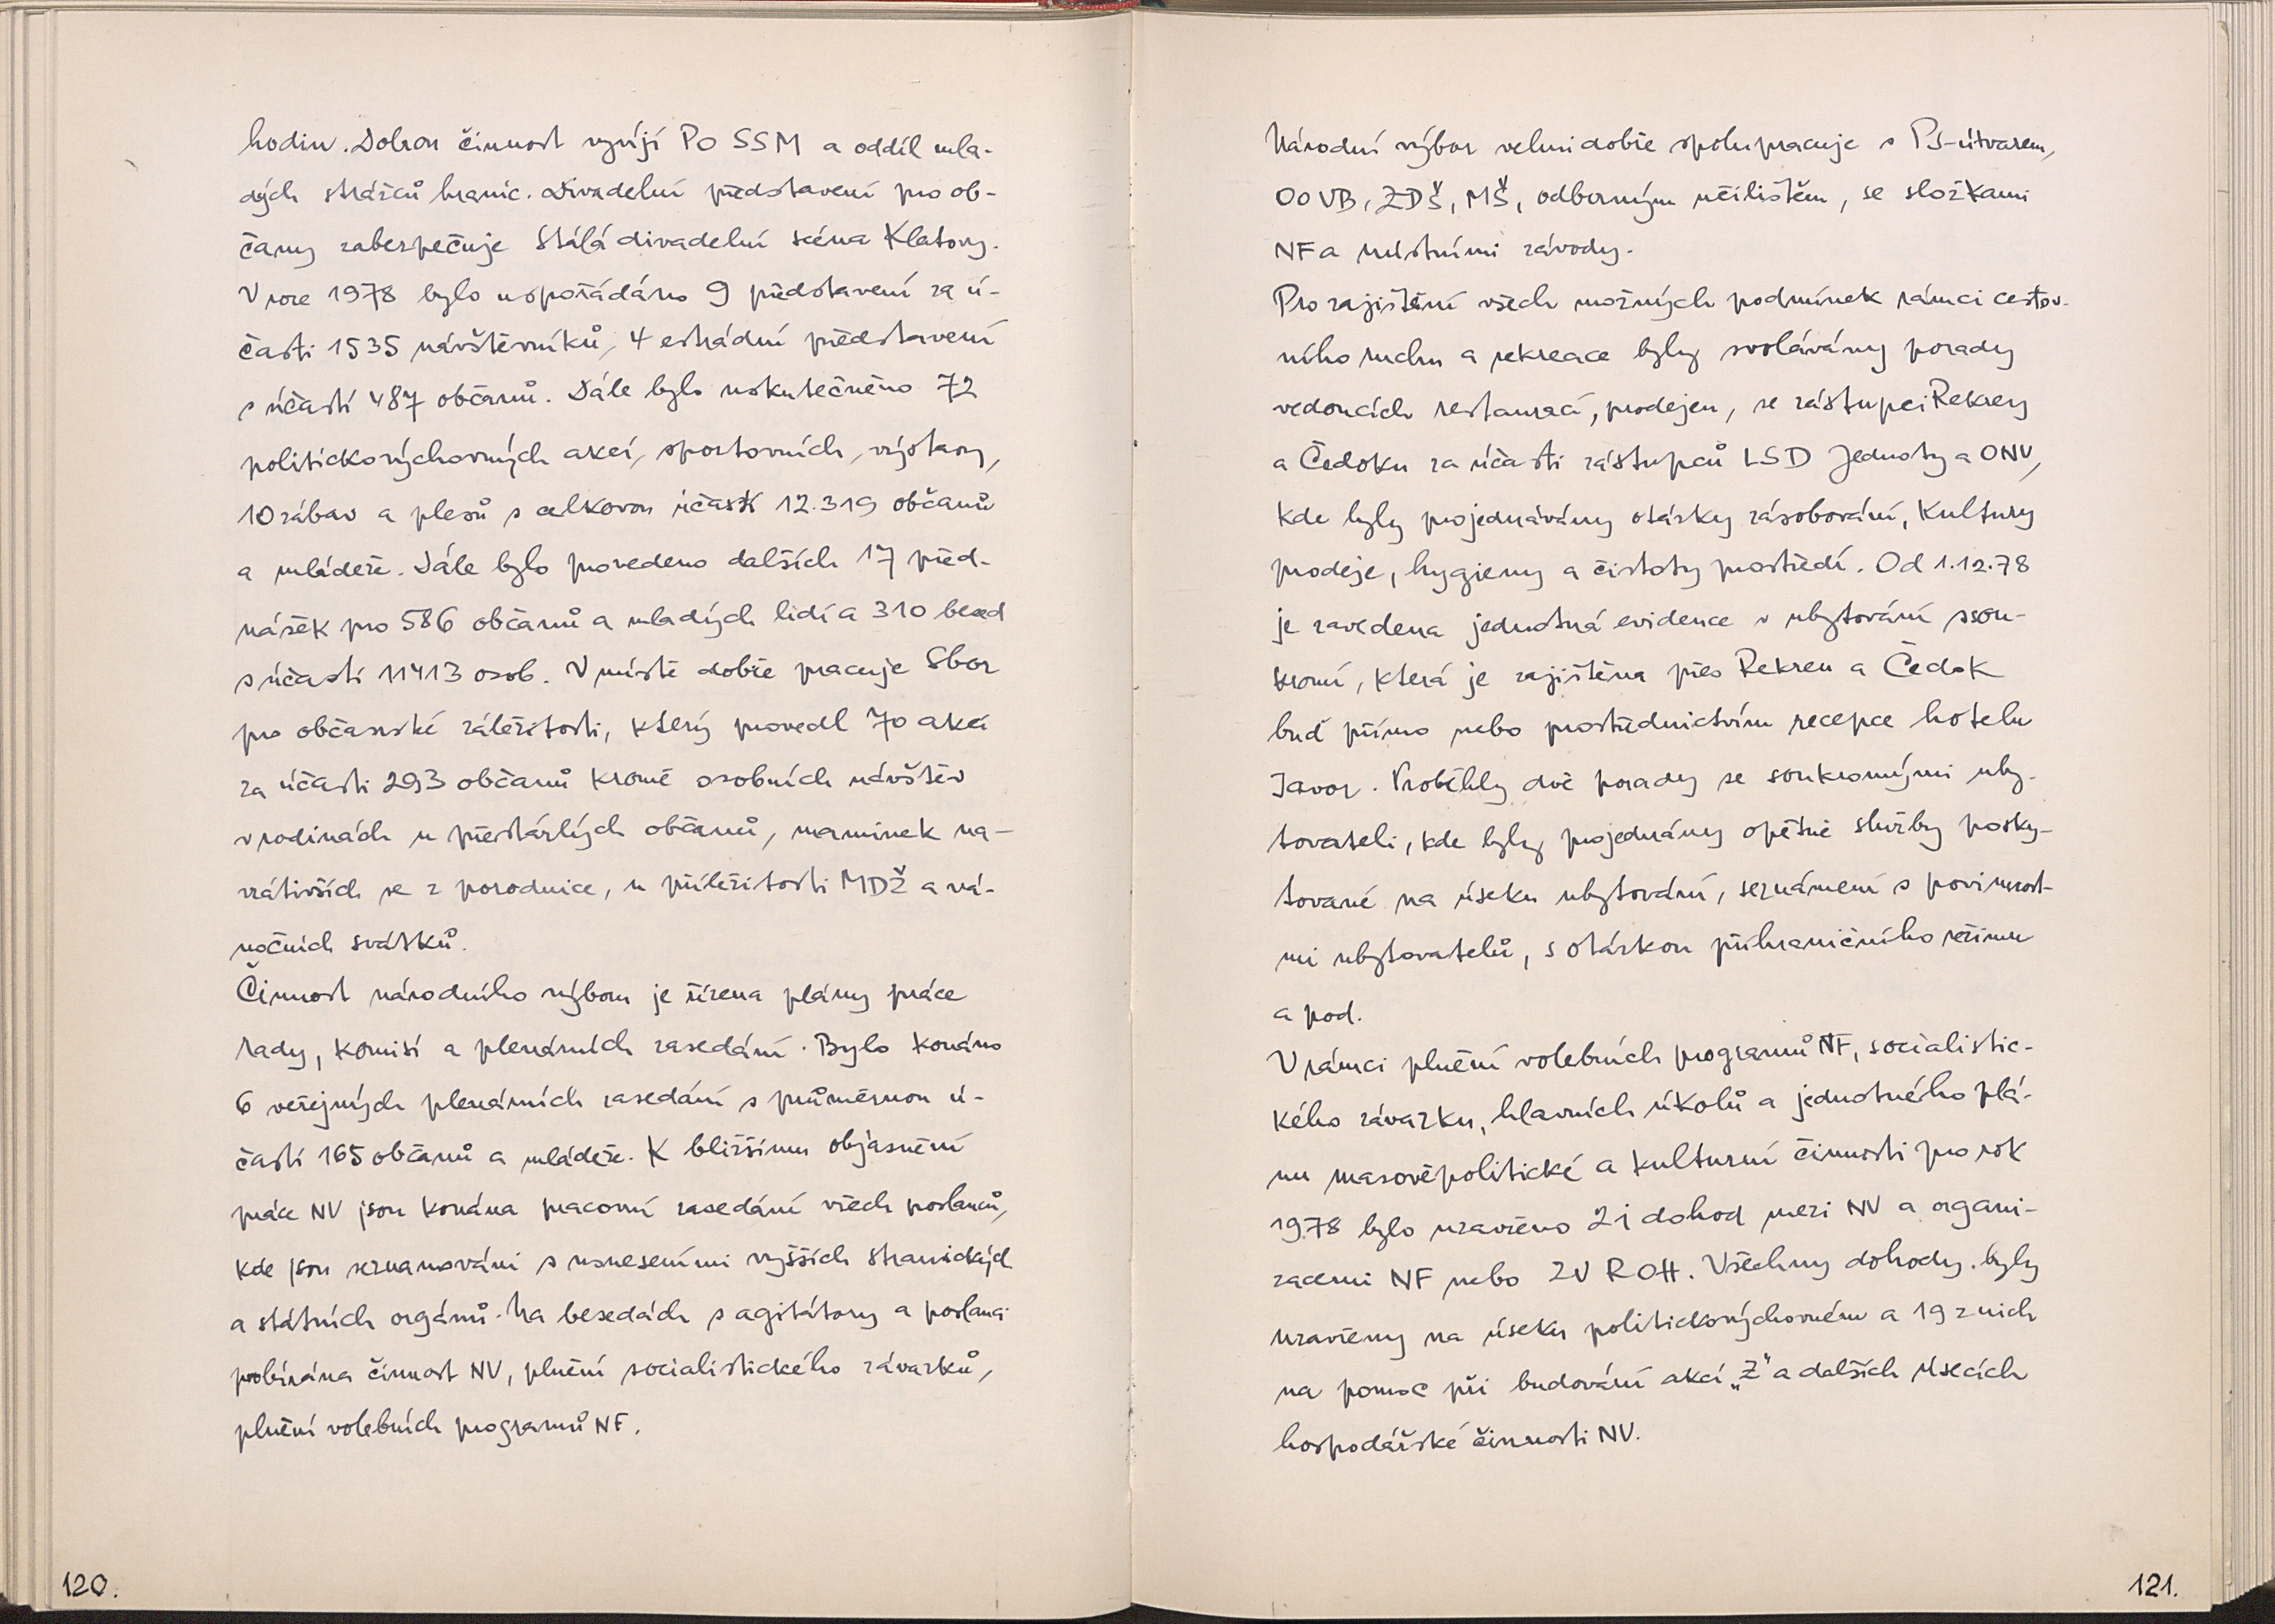 hodin. Dobrou činnost vyvíjí PO SSM a oddíl mla-
dých strážců hranic. Divadelní představení pro ob-
čany zabezpečuje Stálá divadelní scéna Klatovy.
V roce 1978 bylo uspořádáno 9 představení za ú-
časti 1535 návštěvníků, 4 estrádní představení
s účastí 487 občanů. Dále bylo uskutečněno 72
politickovýchovných akcí, sportovních, výstavy,
10 zábav a plesů s celkovou účastí 12.319 občanů
a mládeže. Dále bylo provedeno dalších 17 před-
nášek pro 586 občanů a mladých lidí a 310 besed
s účastí 11413 osob. V místě dobře pracuje Sbor
pro občanské záležitosti, který provedl 70 akcí
za účasti 293 občanů kromě osobních návštěv
v rodinách u přestárlých občanů, maminek na-
vrátivších se z porodnice, u příležitosti MDŽ a vá-
nočních svátků.
Činnost národního výboru je řízena plány práce
rady, komisí a plenárních zasedání. Bylo konáno
6 veřejných plenárních zasedání s průměrnou ú-
častí 165 občanů a mládeže. K bližšímu objasnění
práce NV jsou konána pracovní zasedání všech poslanců,
kde jsou seznamováni s usneseními vyšších stranických
a státních orgánů. Na besedách s agitátory a poslanci
probírána činnost NV, plnění socialistického závazků,
plnění volebních programů NF.
120.
Národní výbor velmi dobře spolupracuje s PS-útvarem,
OO VB, ZDŠ, MŠ, odborným učilištěm, se složkami
NF a místními závody.
Pro zajištění všech možných podmínek rámci cestov-
ního ruchu a rekreace byly svolávány porady
vedoucích restaurací, prodejen, se zástupci Rekrey
a Čedoku za účasti zástupců LSD Jednoty a ONV,
kde byly projednávány otázky zásobování, kultury
prodeje, hygieny a čistoty prostředí. Od 1.12.78
je zavedena jednotná evidence v ubytování v sou-
kromí, která je zajištěna přes Rekreu a Čedok
buď přímo nebo prostřednictvím recepce hotelu
Javor. Proběhly dvě porady se soukromými uby-
tovateli, kde byly projednány opětně služby posky-
tované na úseku ubytování, seznámení s povinnost-
mi ubytovatelů, s otázkou příhraničního režimu
a pod.
V rámci plnění volebních programů NF, socialistic-
kého závazku, hlavních úkolů a jednotného plá-
nu masověpolitické a kulturní činnosti pro rok
1978 bylo uzavřeno 21 dohod mezi NV a organi-
zacemi NF nebo ZV ROH. Všechny dohody byly
uzavřeny na úseku politickovýchovném a 19 z nich
na pomoc při budování akcí „Z" a dalších úsecích
hospodářské činnosti NV.
121.